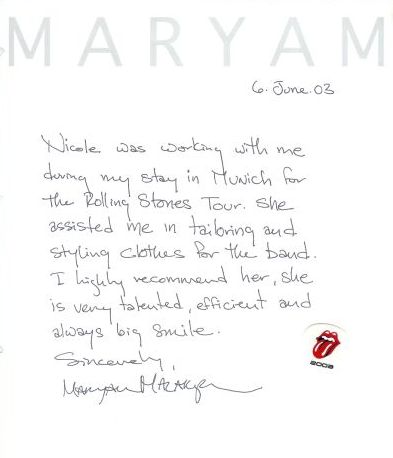 MARYAM
6. June. 03
Nicole was working with me
during my stay in Munich for
the Rolling Stones Tour. She
assisted me in tailoring and
styling clothes for the band.
I highly recommend her, she
is very talented, efficient and
always big smile.
Sincerely,
Maryam
2003